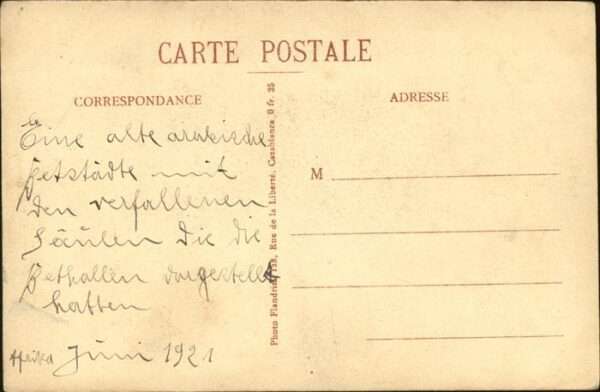 CARTE POSTALE
CORRESPONDANCE
ADRESSE
Eine alte arabische
Betstädte mit
den verfallenen
Säulen die die
Bethallen dargestellt
hatten
Afrika Juni 1921
M
Photo Flandrin, Rue de la Liberté, Casablanca 0 fr. 35